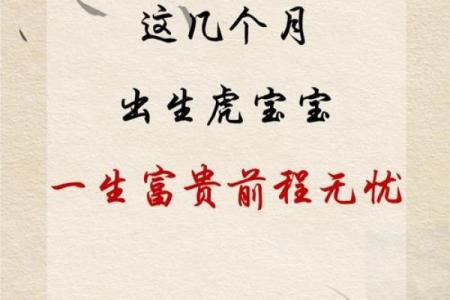 这几个月
出生虎宝宝
一生富贵前程无忧